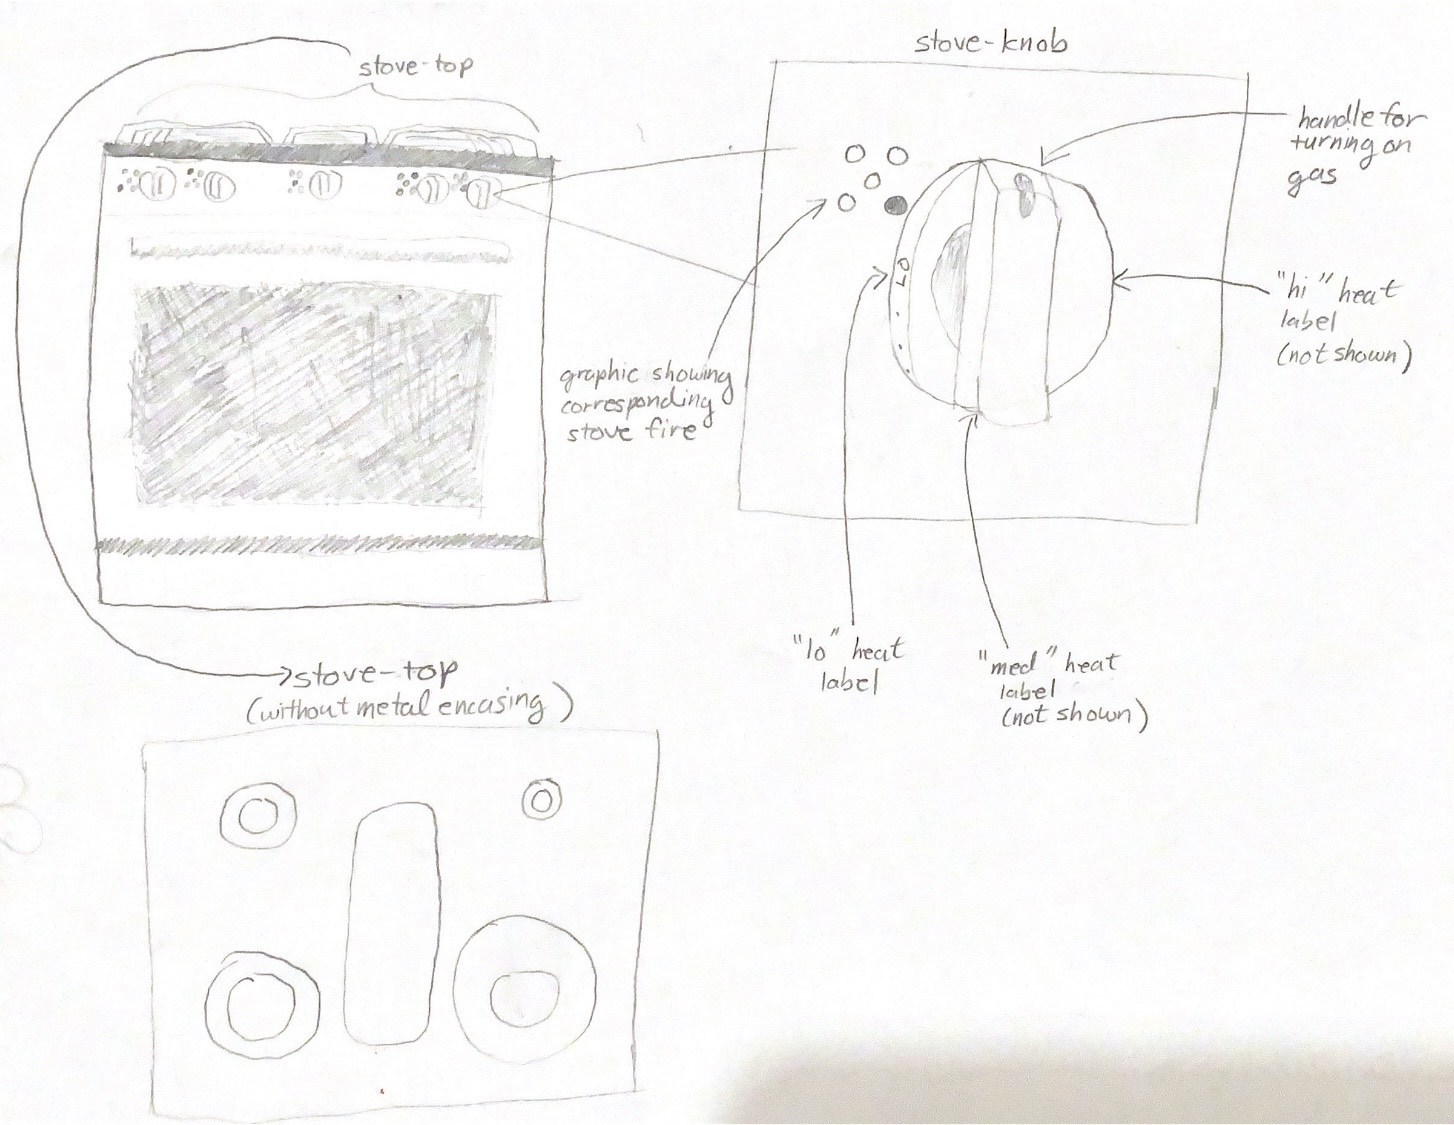 stove-top
stove-knob
handle for
turning on
gas
"hi" heat
label
(not shown)
LO
graphic showing
corresponding
stove fire
"lo" heat
label
"med" heat
label
(not shown)
stove-top
(without metal encasing)